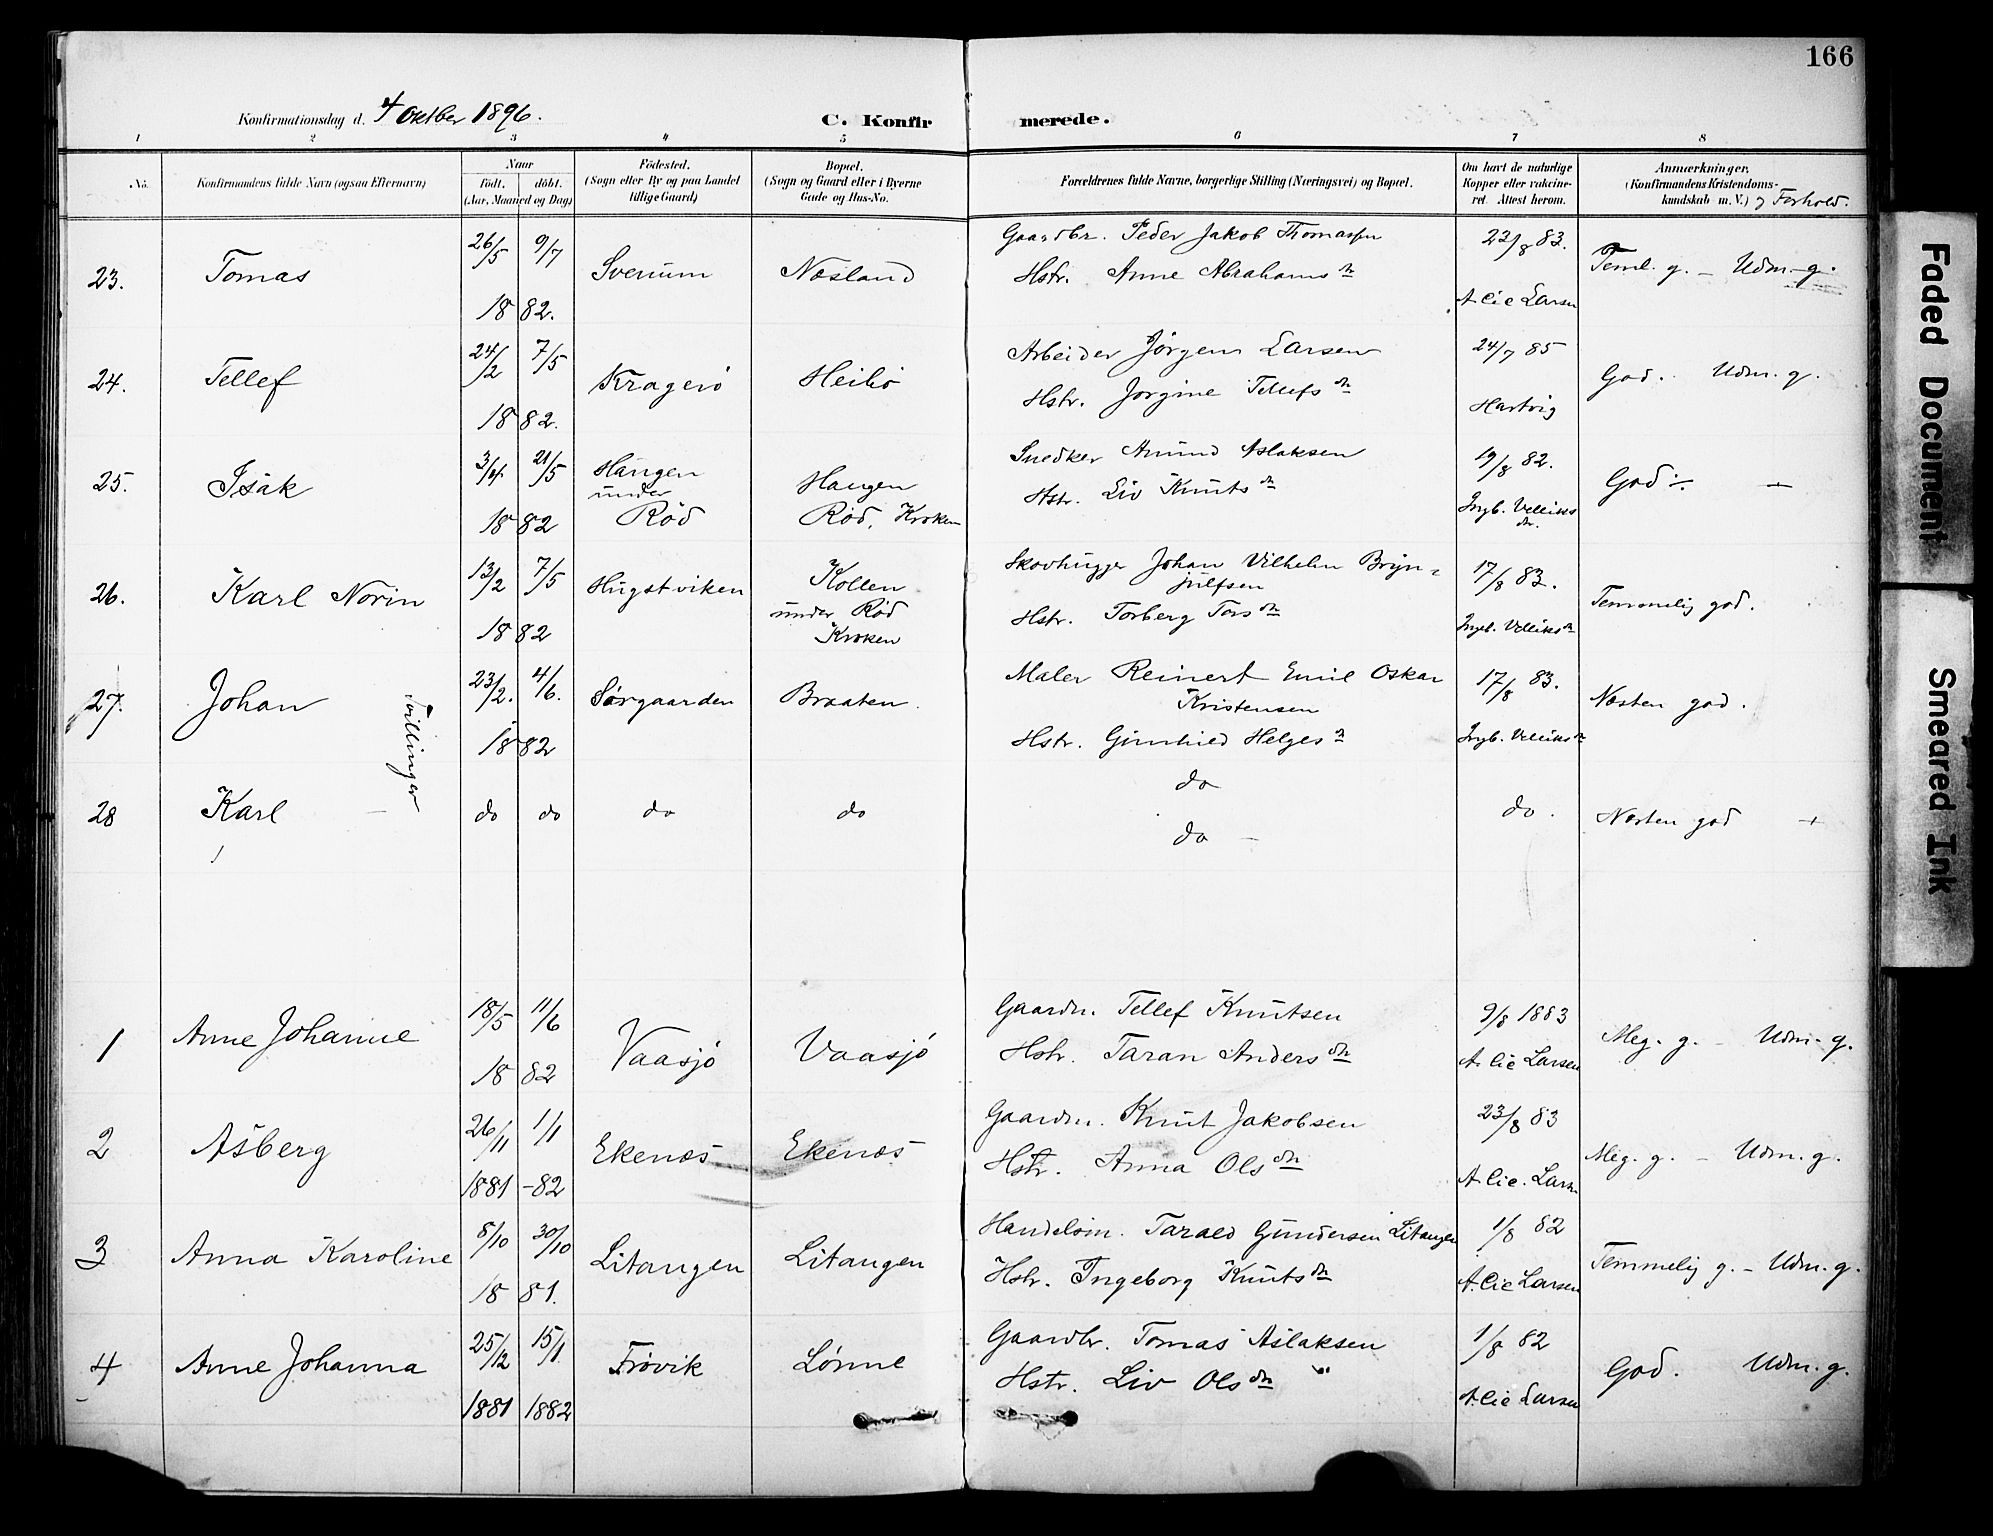 166
Konfirmationsdag d. 4 Oktber 1896.
C. Konfirmerede.
1 2 3 4 5 6 7 8
No.
Konfirmandens fulde Navn (ogsaa Efternavn)
Naar
födt. döbt.
(Aar, Maaned og Dag)
Födested.
(Sogn eller By og paa Landet
tillige Gaard)
Bopæl.
(Sogn og Gaard eller i Byerne
Gade og Hus-No.
Forældrenes fulde Navne, borgerlige Stilling (Næringsvei) og Bopæl.
Om havt de naturlige
Kopper eller vakcine-
ret. Attest herom.
Anmærkninger.
(Konfirmandens Kristendoms-
kundskab m. V.) og Forhold.
23. Tomas 26/5 9/7 1882. Svenum Næsland
Gaardbr. Peder Jakob Thomassen
Hstr. Anne Abrahamsdn
23/8 83.
A Cie Larsen
Teml. g. - Udm. g.
24. Tellef 24/2 7/5 1882. Kragerö Heibö
Arbeider Jörgen Larsen
Hstr. Jorgine Tellefsdn
24/7 85
Hartvig
God. Udm. g.
25. Isak 3/4 21/5 1882
Haugen
under
Röd
Haugen
Röd, Kroken
Snedker Amund Aslaksen
Hstr. Liv Knutsdn
19/8 82.
Ingb. Velliks
dn.
God -
26. Karl Norin 13/2 7/5 1882 Hugstviken
Kollen
under Röd
Kroken
Skovhugger Johan Vilhelm Bryn-
julfsen
Hstr. Torberg Torsdn
17/8 83.
Ingb. Velliksdn
Temmelig god.
27. Johan 23/2. 4/6. 1882 Sörgaarden Braaten.
Tvillinger
Maler Reinert Emil Oskar
Kristensen
Hstr. Gunhild Helgesdn
17/8 83.
Ingb. Velliksdn
Næsten god.
28 Karl - do do do do
do
do -
do.
Næsten god
1 Anne Johanne 18/5 11/6 1882 Vaasjö Vaasjö
Gaardm. Tellef Knutsen
Hstr. Taran Andersdn
9/8 1883
A. Cie Larsen
Meg. g. - Udm. g.
2 Asberg 26/11 1/1 1881 -82 Ekenæs Ekenæs
Gaardm. Knut Jakobsen
Hstr. Anna Olsdn
23/8 83
A. Cie. Larsn
Meg. g. - Udm. g.
3 Anna Karoline 8/10 30/10 1881. Litangen Litangen
Handelsm. Tarald Gundersen Litangen
Hstr. Ingeborg Knutsdn
1/8 82
A. Cie Larsen
Temmelig g. - Udm. g.
4 Anne Johanna 25/12 15/1 1881 1882 Frövik Lönne
Gaardbr. Tomas Aslaksen
Hstr. Liv Olsdn "
1/8 82
A. Cie Larsen
God. Udm. g.
Faded Document
Smeared Ink